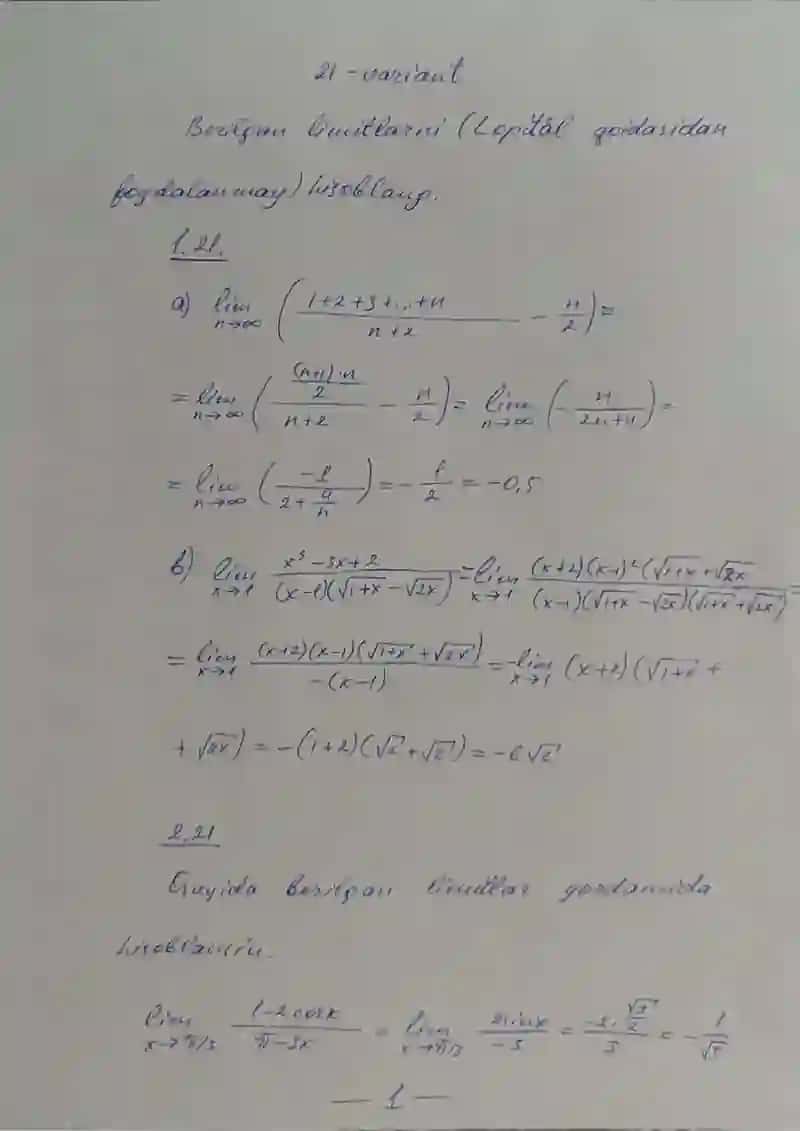 21-variant
Berilgan limitlarni (Lopital qoidasidan
foydalanmay) hisoblang.
1.21.
a) lim n→∞ ((1+2+3+...+n)/(n+2) - n/2) =
= lim n→∞ (((n+1)·n/2)/(n+2) - n/2) = lim n→∞ (-n/(2n+4)) =
= lim n→∞ (-1/(2+4/n)) = -1/2 = -0,5
b) lim x→1 (x³-3x+2)/((x-1)(√1+x - √2x)) = lim x→1 ((x+2)(x-1)²(√1+x + √2x)/((x-1)(√1+x - √2x)(√1+x + √2x)) =
= lim x→1 ((x+2)(x-1)(√1+x + √2x))/(-(x-1)) = -lim x→1 (x+2)(√1+x +
+ √2x) = -(1+2)(√2 + √2) = -6√2
2.21
Quyida berilgan limitlar yordamida
lim x→π/3 (1-2cosx)/(π-3x) = lim x→π/3 2sinx/-3 = (-2·√3/2)/3 = -1/√3
— 1 —